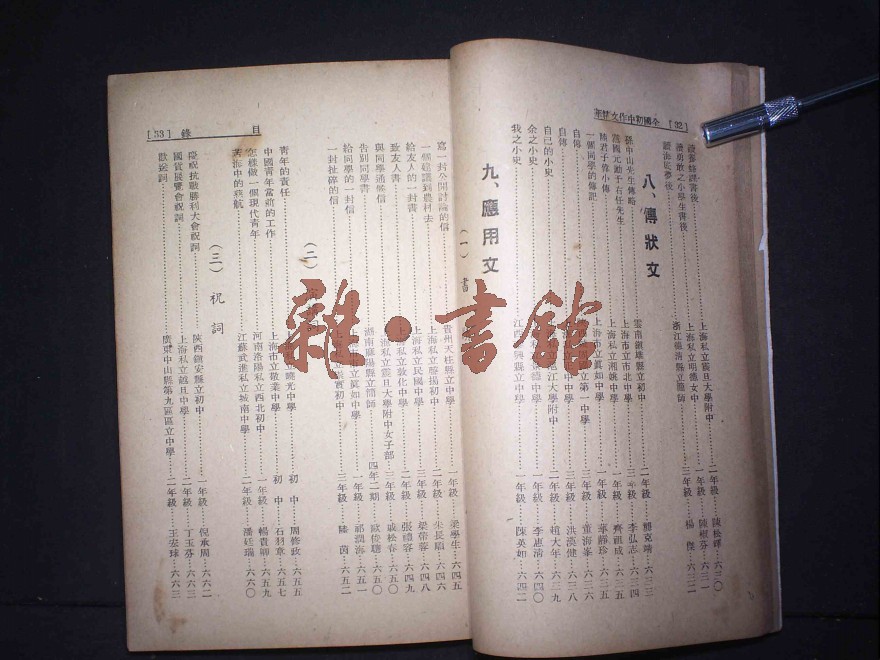 [32] 全國初中作文精華
讀夢蛙謎書後……上海私立震旦大學附中……二年級 陳松輝…六三〇
讀勇敢之小學生書後……上海私立明德女中……一年級 陳椒芬…六三一
浙江……縣立簡師……三年級 楊傑…六三二
八、傳狀文
孫中山先生傳略……雲南鎮雄縣立初中……二年級 熊克靖…六三三
黨國元勳于右任先生……上海市立市北中學……三年級 李弘志…六三四
陸君子偉小傳……上海私立湘姚中學……二年級 齊組成…六三五
一個同學的傳記……上海市立眞如中學……一年級 華靜珍…六三五
自傳……立第一中學……三年級 董海峯…六三六
自傳……中學……三年級 洪漢健…六三八
自己的小史……江大學附中……二年級 趙大年…六三九
余之小史……德中學……一年級 李惠清…六四〇
我之小史……江西……興縣立中學……一年級 陳英如…六四二
九、應用文
(一) 書
目錄 [33]
寫一封公開討論的信……貴州天柱縣立中學……一年級 梁學生…六四五
一個建議到農村去……上海私立藤揚初中……二年級 朱長順…六四六
給友人的一封書……上海私立民國中學……一年級 梁希蓉…六四八
致友人書……上海私立敦化中學……二年級 張禮容…六四九
與同學通候信……私立震旦大學附中女子部……三年級 戚松春…六五〇
告別同學書……湖南麻陽縣立簡師……四年二期 歐俊聰…六五〇
給同學的一封信……上海市立眞如中學……一年級 祁潤海…六五一
一封扯碎的信……實初中……三年級 陸茵…六五二
(二)
青年的責任……上海私立曉光中學……初中 周修政…六五五
中國青年當前的工作……上海市立敬業中學……初中 石羽章…六五七
怎樣做一個現代青年……河南洛陽私立西北初中……一年級 楊貴卿…六五九
苦海中的慈航……江蘇武進私立城南中學……二年級 潘廷瑞…六六〇
(三) 祝詞
慶祝抗戰勝利大會祝詞……陝西鎮安縣立初中……一年級 倪承周…六六二
國貨展覽會祝詞……上海私立越旦中學……二年級 丁玉芬…六六三
歡送詞……廣東中山縣第九區區立中學……二年級 王宏球…六六三
雜·書館